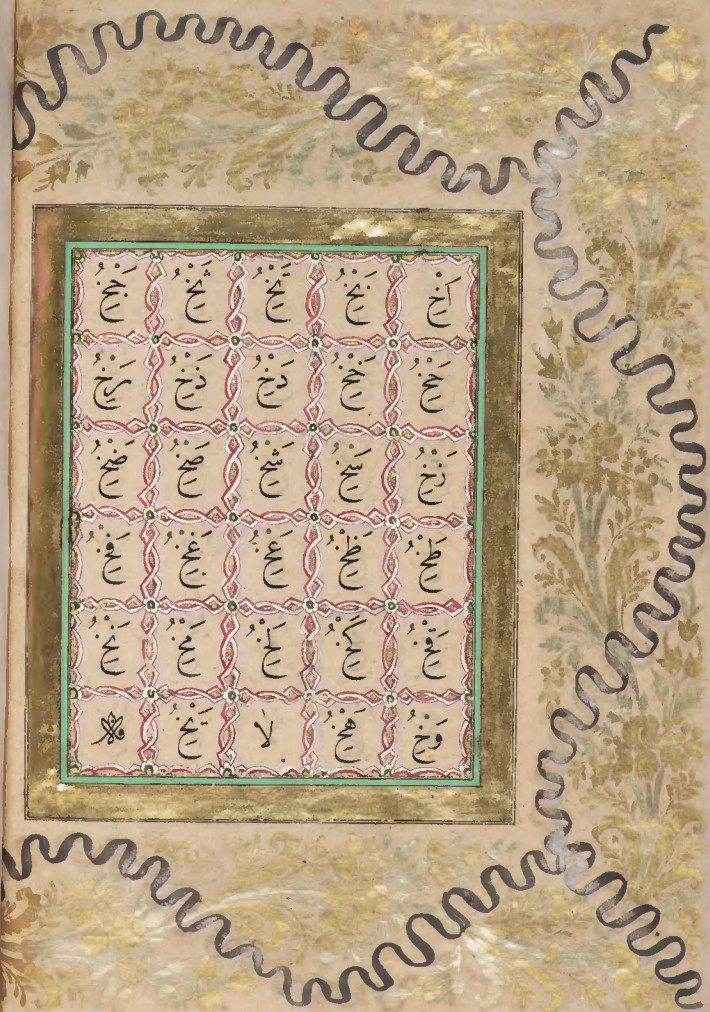 اَخْ بَخْ تَخْ ثَخْ جَخْ
حَخْ خَخْ دَخْ ذَخْ رَخْ
زَخْ سَخْ شَخْ صَخْ ضَخْ
طَخْ ظَخْ عَخْ غَخْ فَخْ
قَخْ كَخْ لَخْ مَخْ نَخْ
وَخْ هَخْ لا يَخْ